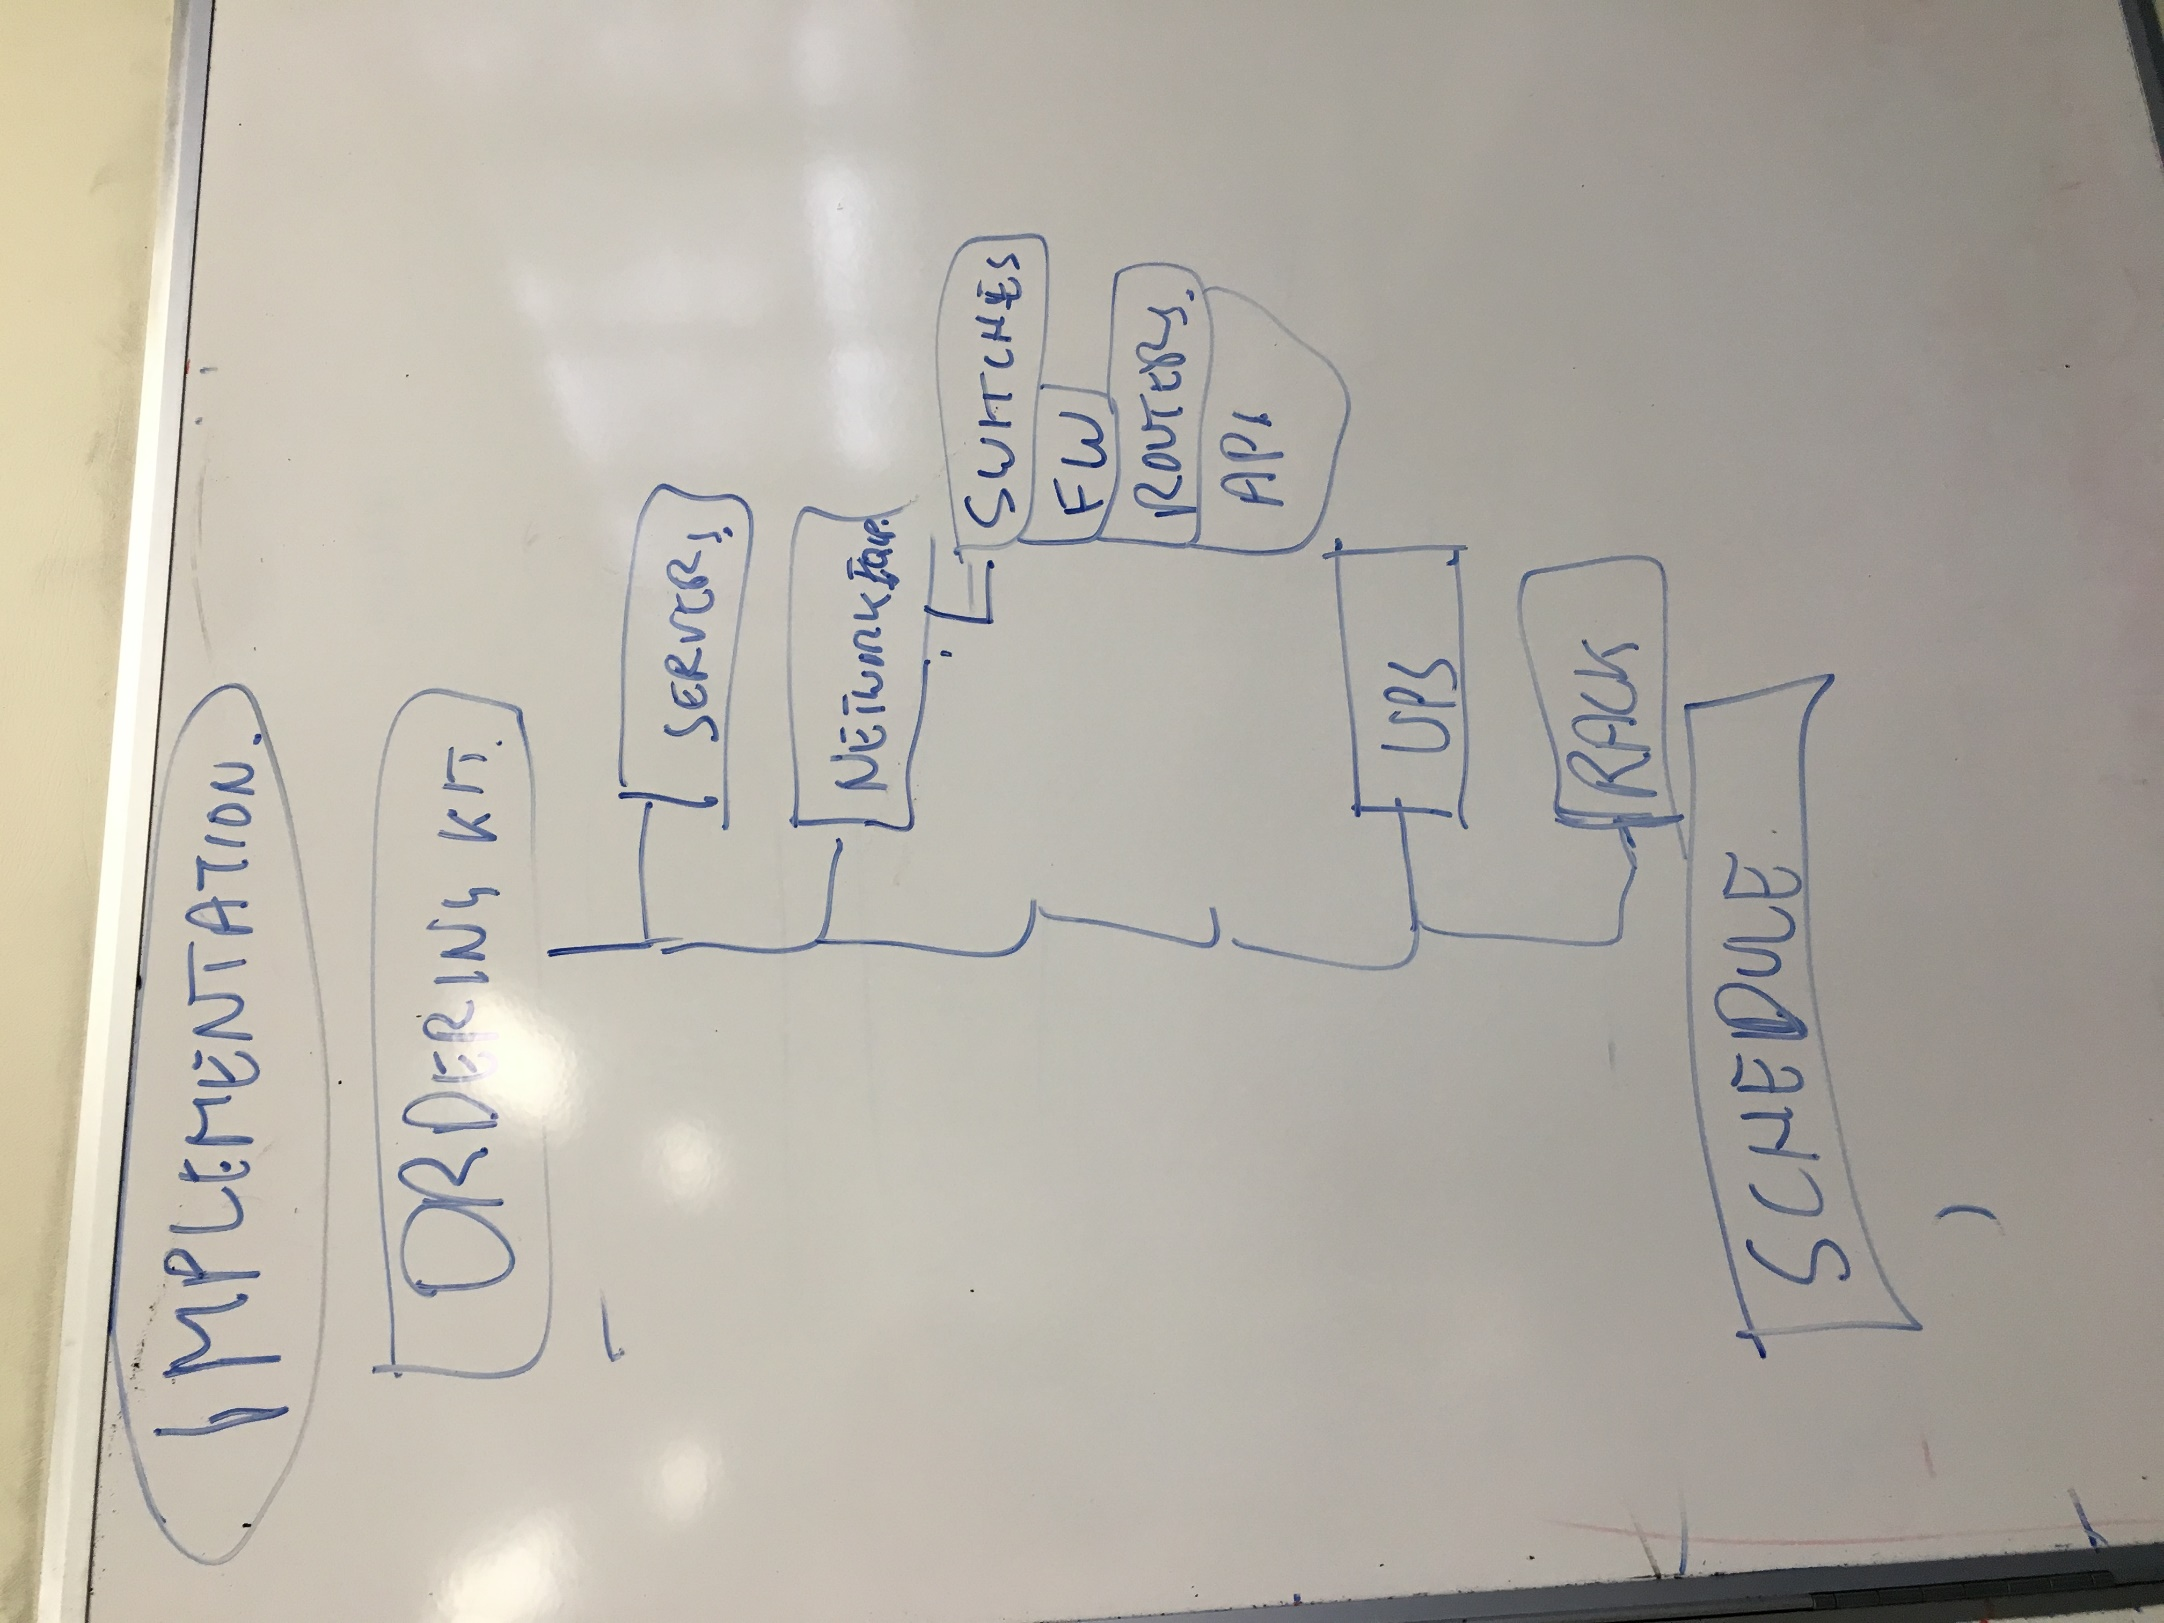 IMPLEMENTATION.
ORDERING KIT.
SERVERS.
NETWORK EQUIP.
SWITCHES
FW
ROUTERS.
APs
UPS
RACKS
SCHEDULE.